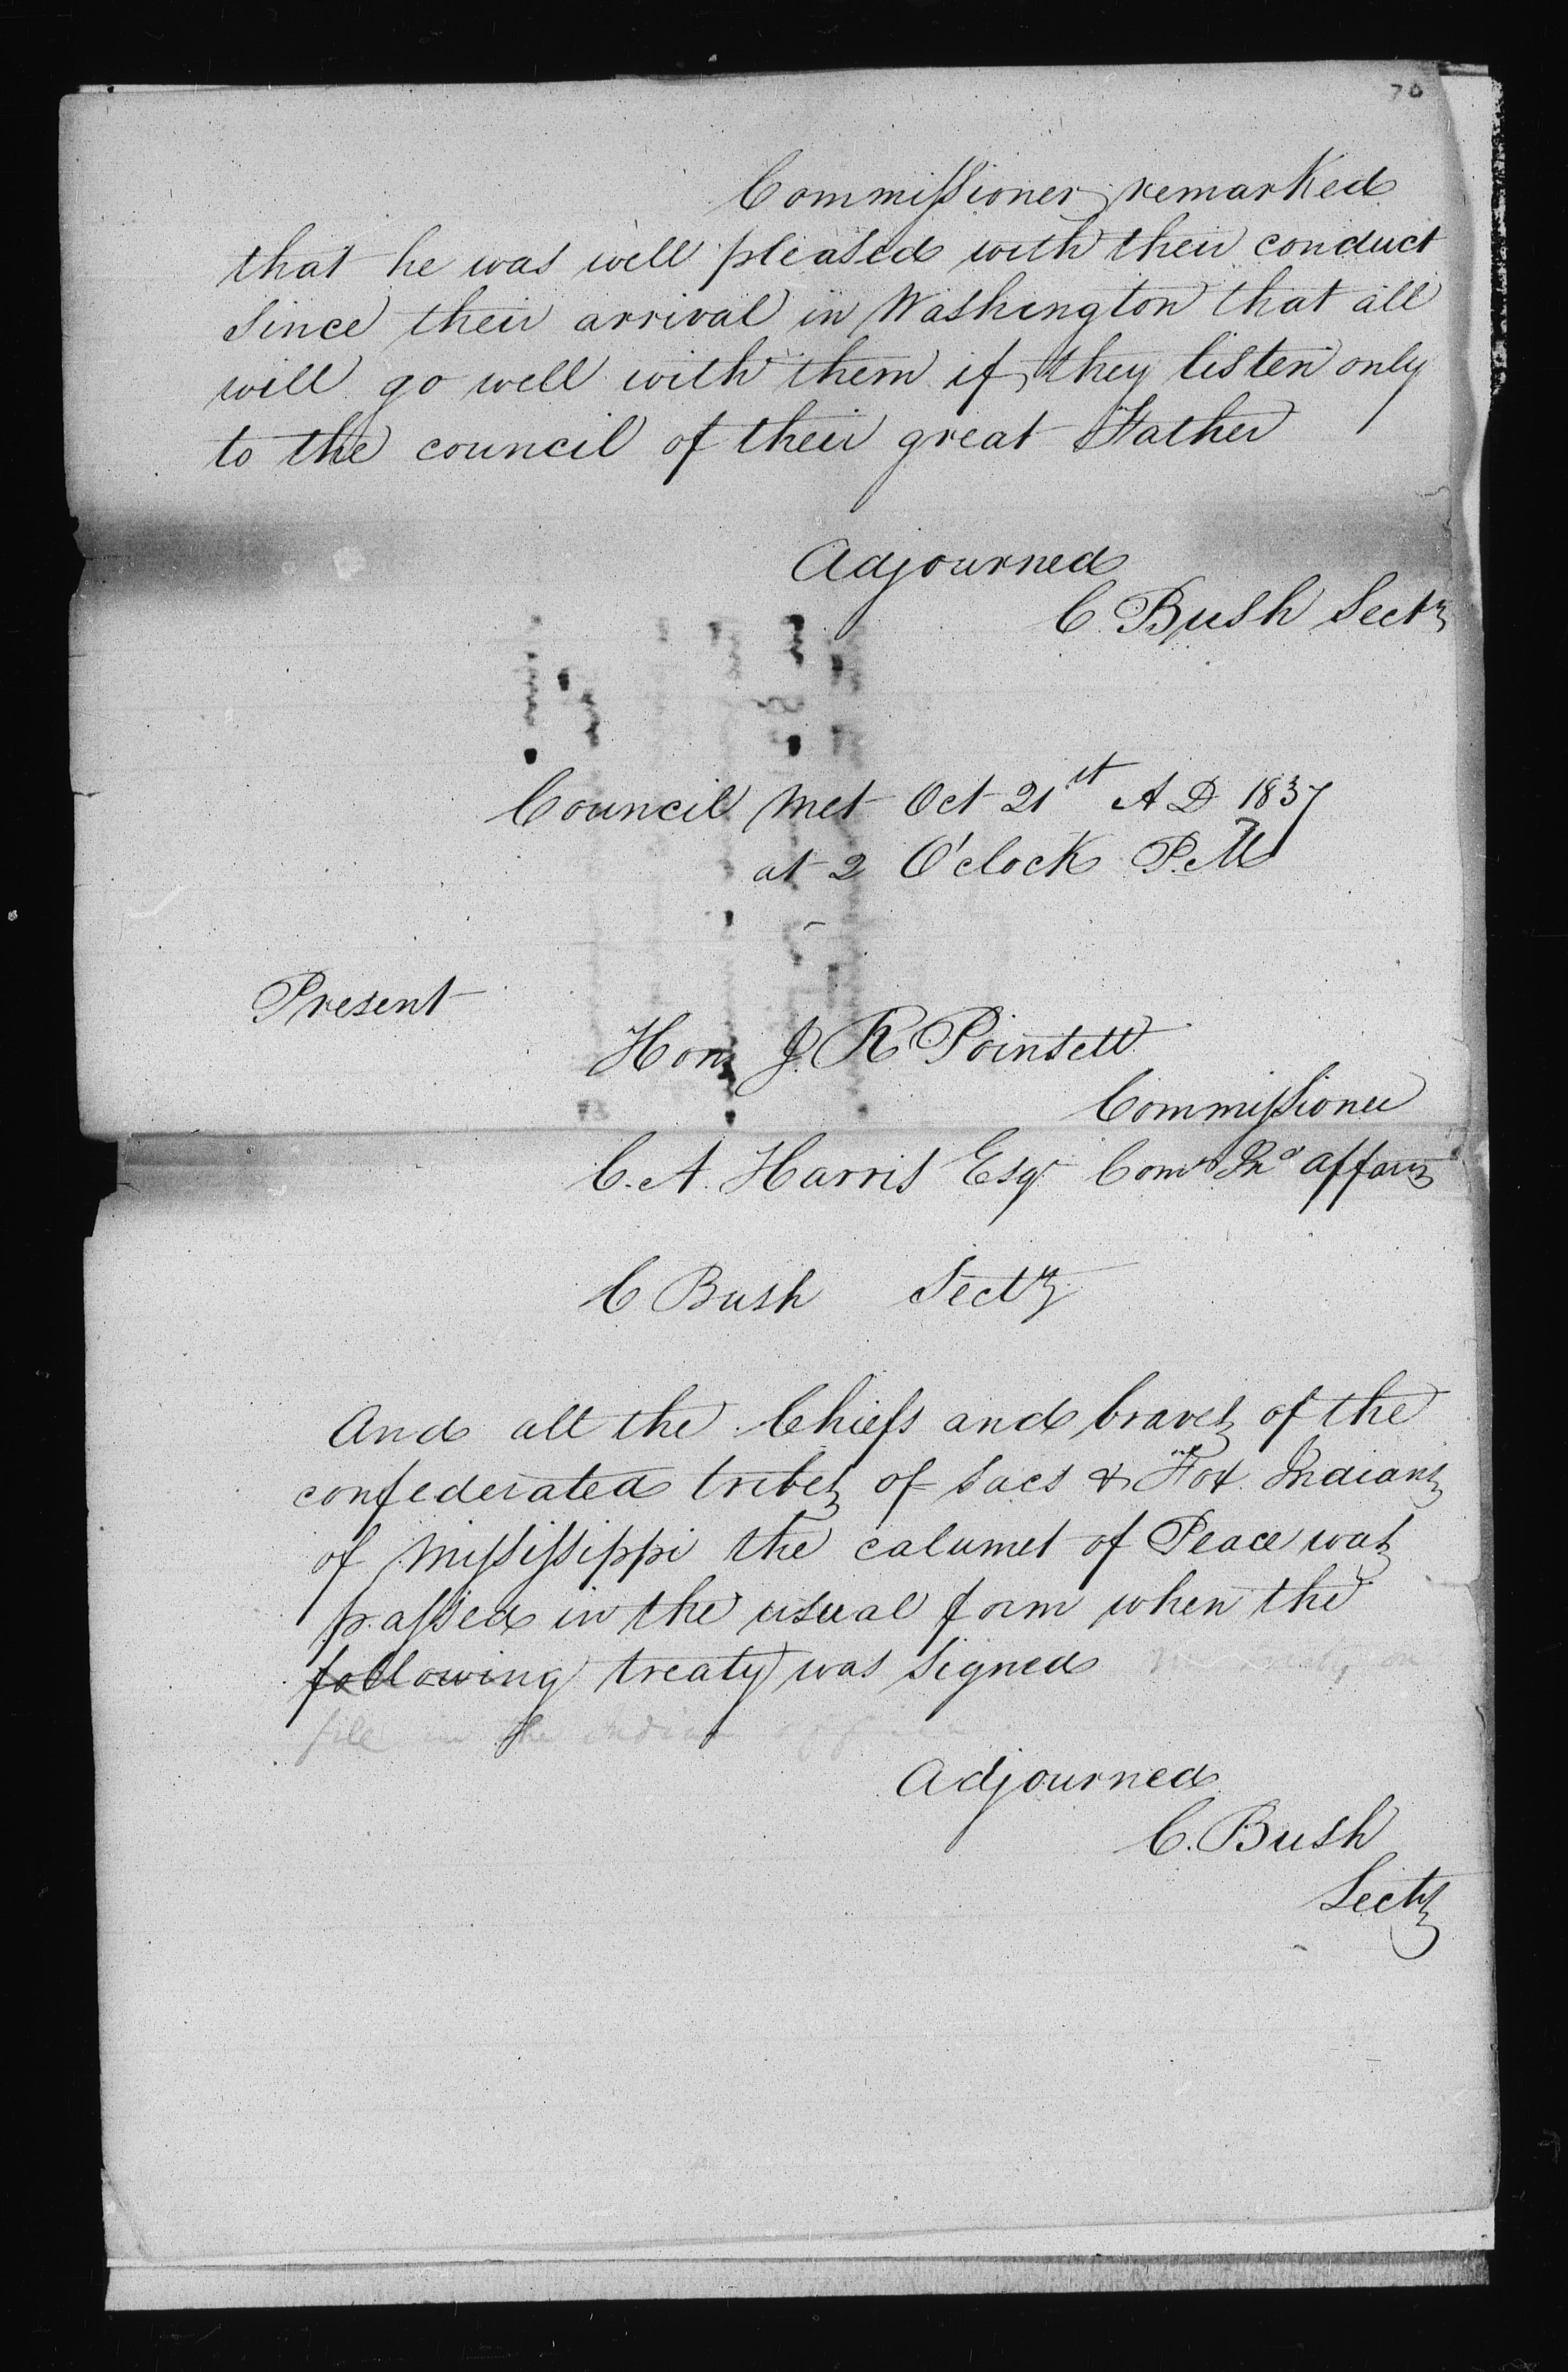 70
Commissioner remarked
that he was well pleased with their conduct
since their arrival in Washington that all
will go well with them if they listen only
to the council of their great Father
Adjourned
C. Bush Secty
Council Met Oct 21st A D 1837
at 2 O'clock P.M
Present
Hon J. R Poinsett
Commissioner
C. A. Harris Esqr Comr Ind affairs
C Bush Secty
And all the Chiefs and braves of the
confederated tribes of Sacs & Fox Indians
of Mississippi the calumet of Peace was
passed in the usual form when the
following treaty was signed on
file in the Indian office
Adjourned
C. Bush
Secty